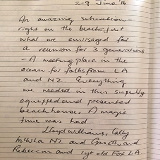 2-9 June '14
An amazing situation
right on the beachfront
what we envisaged for
a reunion for 3 generations
- A meeting place in the
ocean for folks from LA
and NZ. Everything
we needed in this superbly
equipped and presented
beach house. A magic
time was had
Lloyd Williams, Sally
and
Rebecca and LA